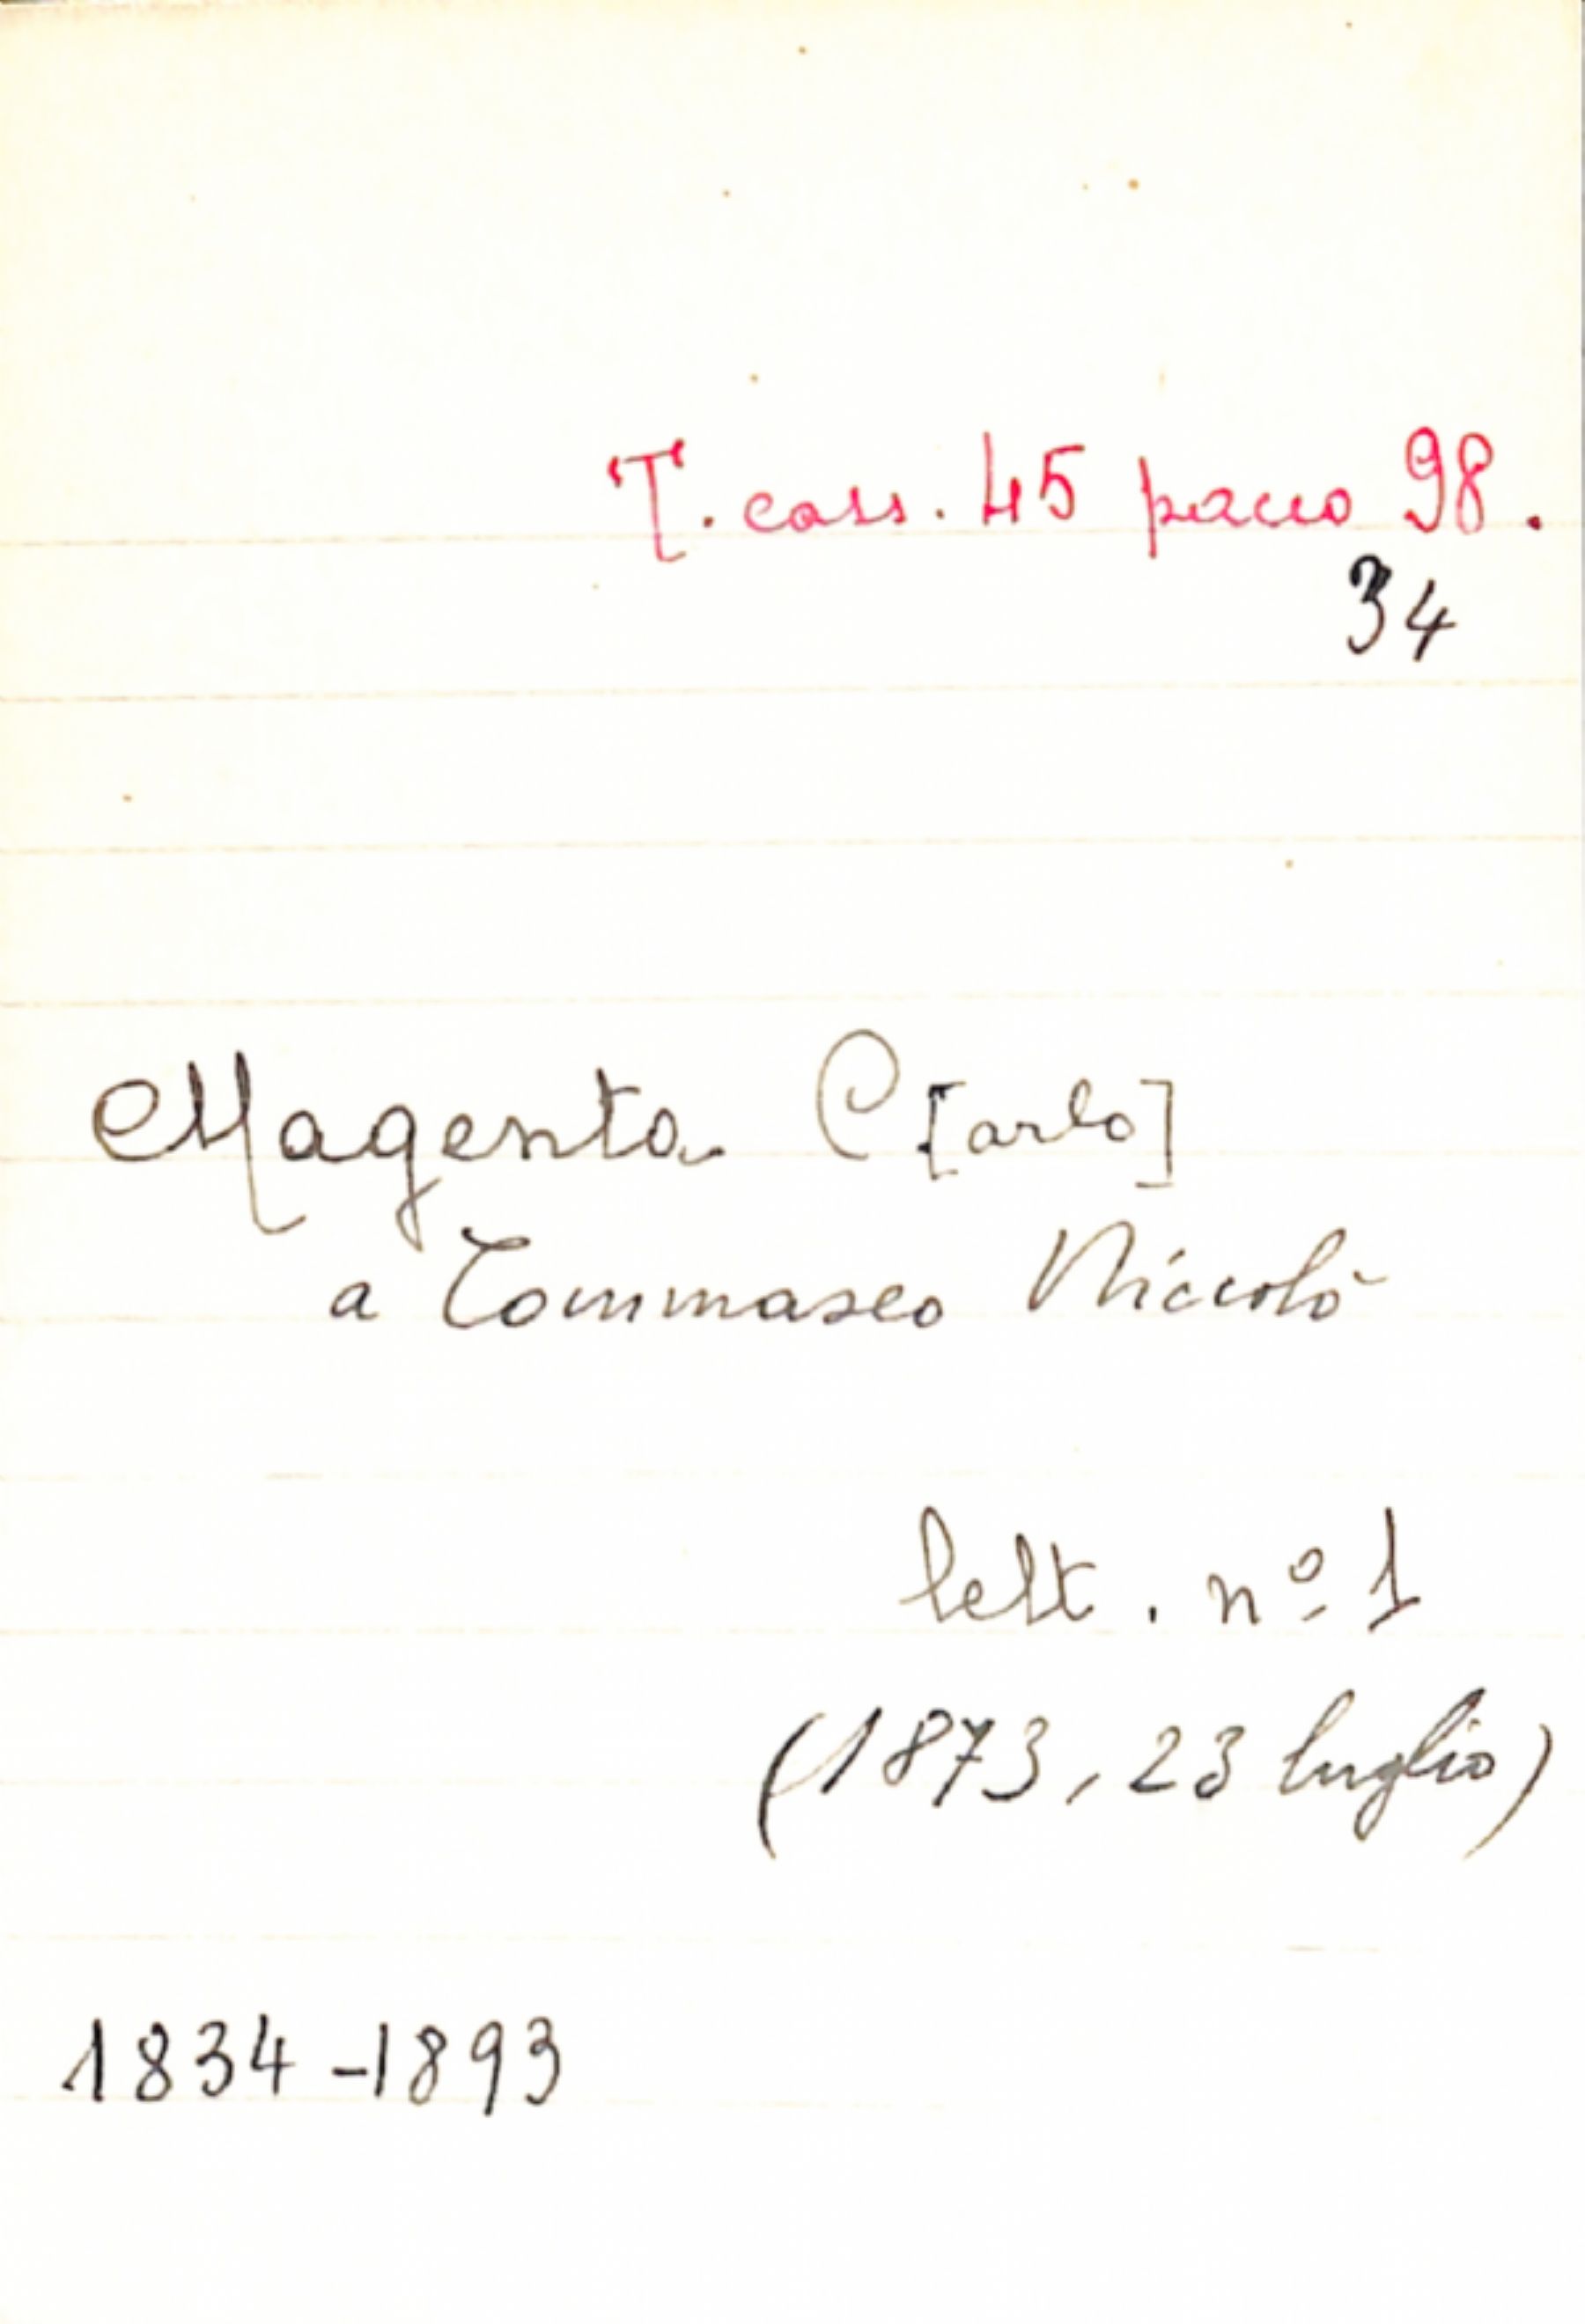 T. cass. 45 pacco 98.
34
Magenta C[arlo]
a Tommaseo Niccolò
lett. nº 1
(1873, 23 luglio)
1834-1893